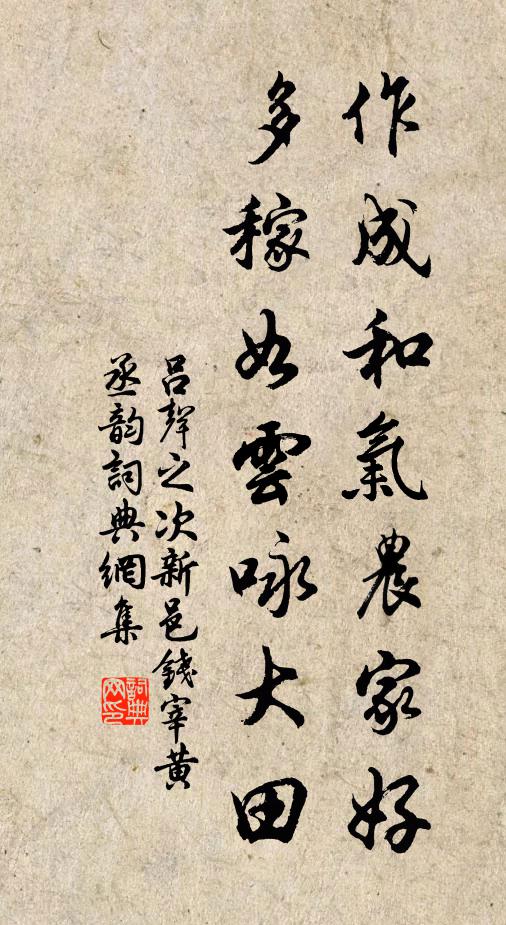 作成和氣農家好
多稼如雲詠大田
呂聲之次新邑錢宰黃
丞韵詞典網集
詞典网印